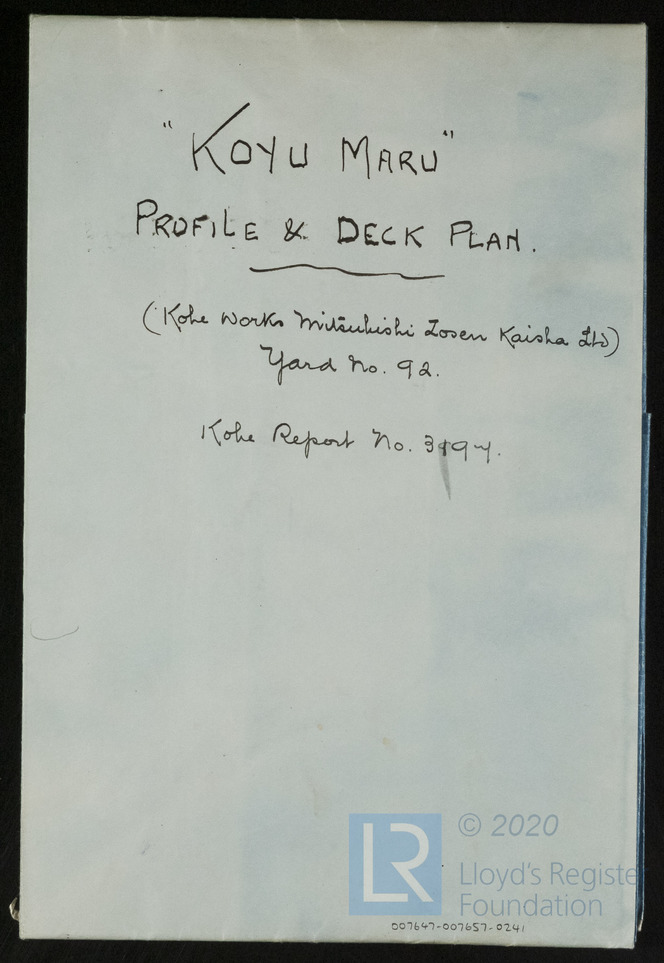 "KOYU MARU"
PROFILE & DECK PLAN.
(Kobe Works Mitsubishi Zosen Kaisha Ltd)
Yard No. 92.
Kobe Report No. 3197.
LR
© 2020
Lloyd's Register
Foundation
007647-007657-0241